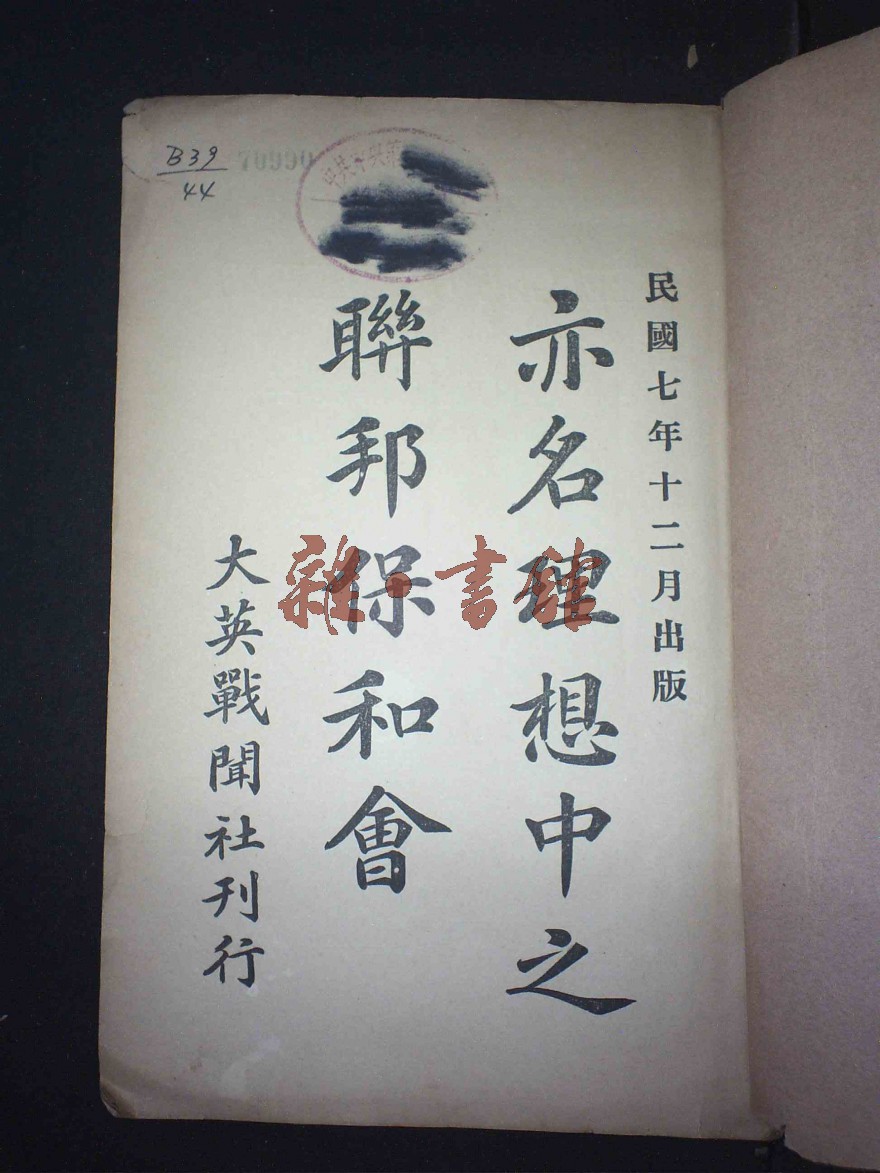 民國七年十二月出版
亦名理想中之
聯邦保和會
大英戰聞社刊行
B39
44
70990
中共中央
雜·書館